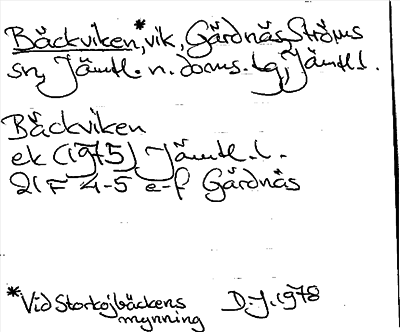 Bäckviken,* vik, Gårdnäs, Ströms
sn, Jämtl. n. doms. lg, Jämtl. l.
Bäckviken
ek (1975) Jämtl. l.
21 F 4-5 e-f Gårdnäs
*Vid Storkojbäckens
mynning D.J. 1978